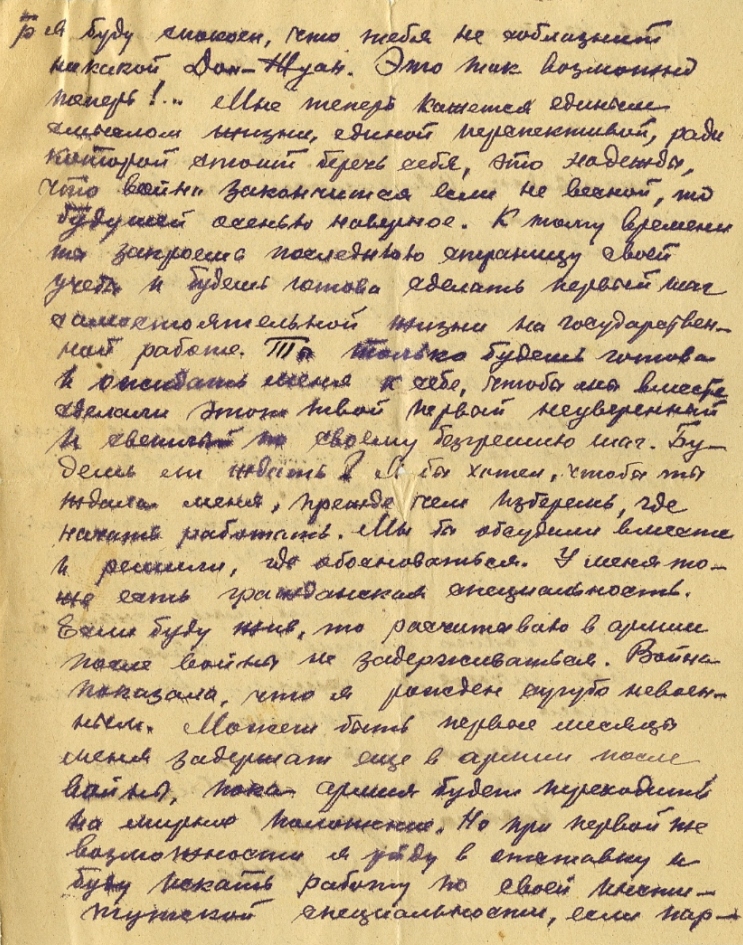 я буду спокоен, что тебя не соблазнит
никакой Дон-Жуан. Это так возможно
теперь!.. Мне теперь кажется единым
смыслом жизни, единой перспективой, ради
которой стоит беречь себя, это надежды,
что война закончится если не весной, то
будущей осенью наверное. К тому времени
ты закроешь последнюю страницу своей
учебы и будешь готова сделать первый шаг
самостоятельной жизни на государствен-
ной работе. Ты только будешь готова
и ожидать меня к себе, чтобы мы вместе
сделали этот твой первый неуверенный
и светлый по своему шаг. Бу-
дешь ли ждать? Я бы хотел, чтобы ты
ждала меня, прежде чем изберешь, где
начать работать. Мы бы обсудили вместе
и решили, где обосноваться. У меня то-
же есть гражданская специальность.
Если буду жив, то расчитываю в армии
после войны не задерживаться. Война
показала, что я рожден сугубо невоен-
ным. Может быть первые месяцы
меня задержат еще в армии после
войны, пока армия будет переходить
на мирное положение. Но при первой же
возможности я уйду в отставку и
буду искать работу по своей инсти-
тутской специальности, если пар-